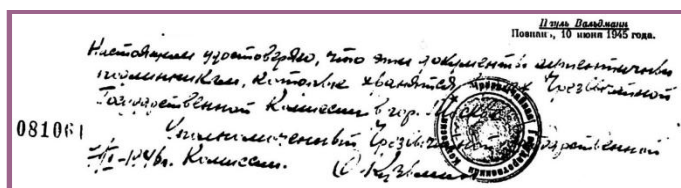 Пауль Вальдманн
Познань, 10 июня 1945 года.
Настоящим удостоверяю, что эти документы аутентичны
подлинникам, которые хранятся Чрезвычайной
Государственной Комиссии в гор. Москве
081061
Уполномоченный Чрезвычайной Государственной
Комиссии.